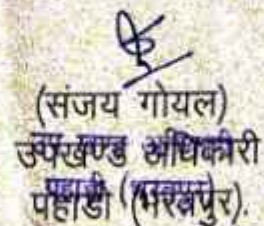 (संजय गोयल)
उपखण्ड अधिकारी
पहाडी (भरतपुर).